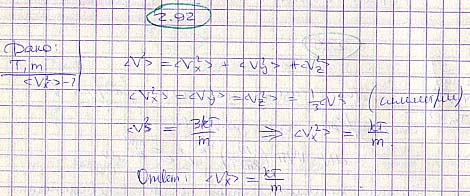 2.92
Дано:
T, m
<Vx²> - ?
<V²> = <Vx²> + <Vy²> + <Vz²>
<Vx²> = <Vy²> = <Vz²> = 1/3 <V²> (симметрия)
<V²> = 3kT/m ⇒ <Vx²> = kT/m
Ответ: <Vx²> = kT/m